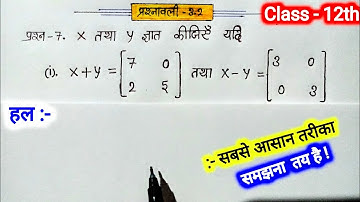 प्रश्नावली - 3.2
Class - 12th
प्रश्न-7. X तथा Y ज्ञात कीजिएँ यदि
(i). X+Y = [7 0
2 5] तथा X-Y = [3 0
0 3]
हल :-
:- सबसे आसान तरीका
समझना तय है !